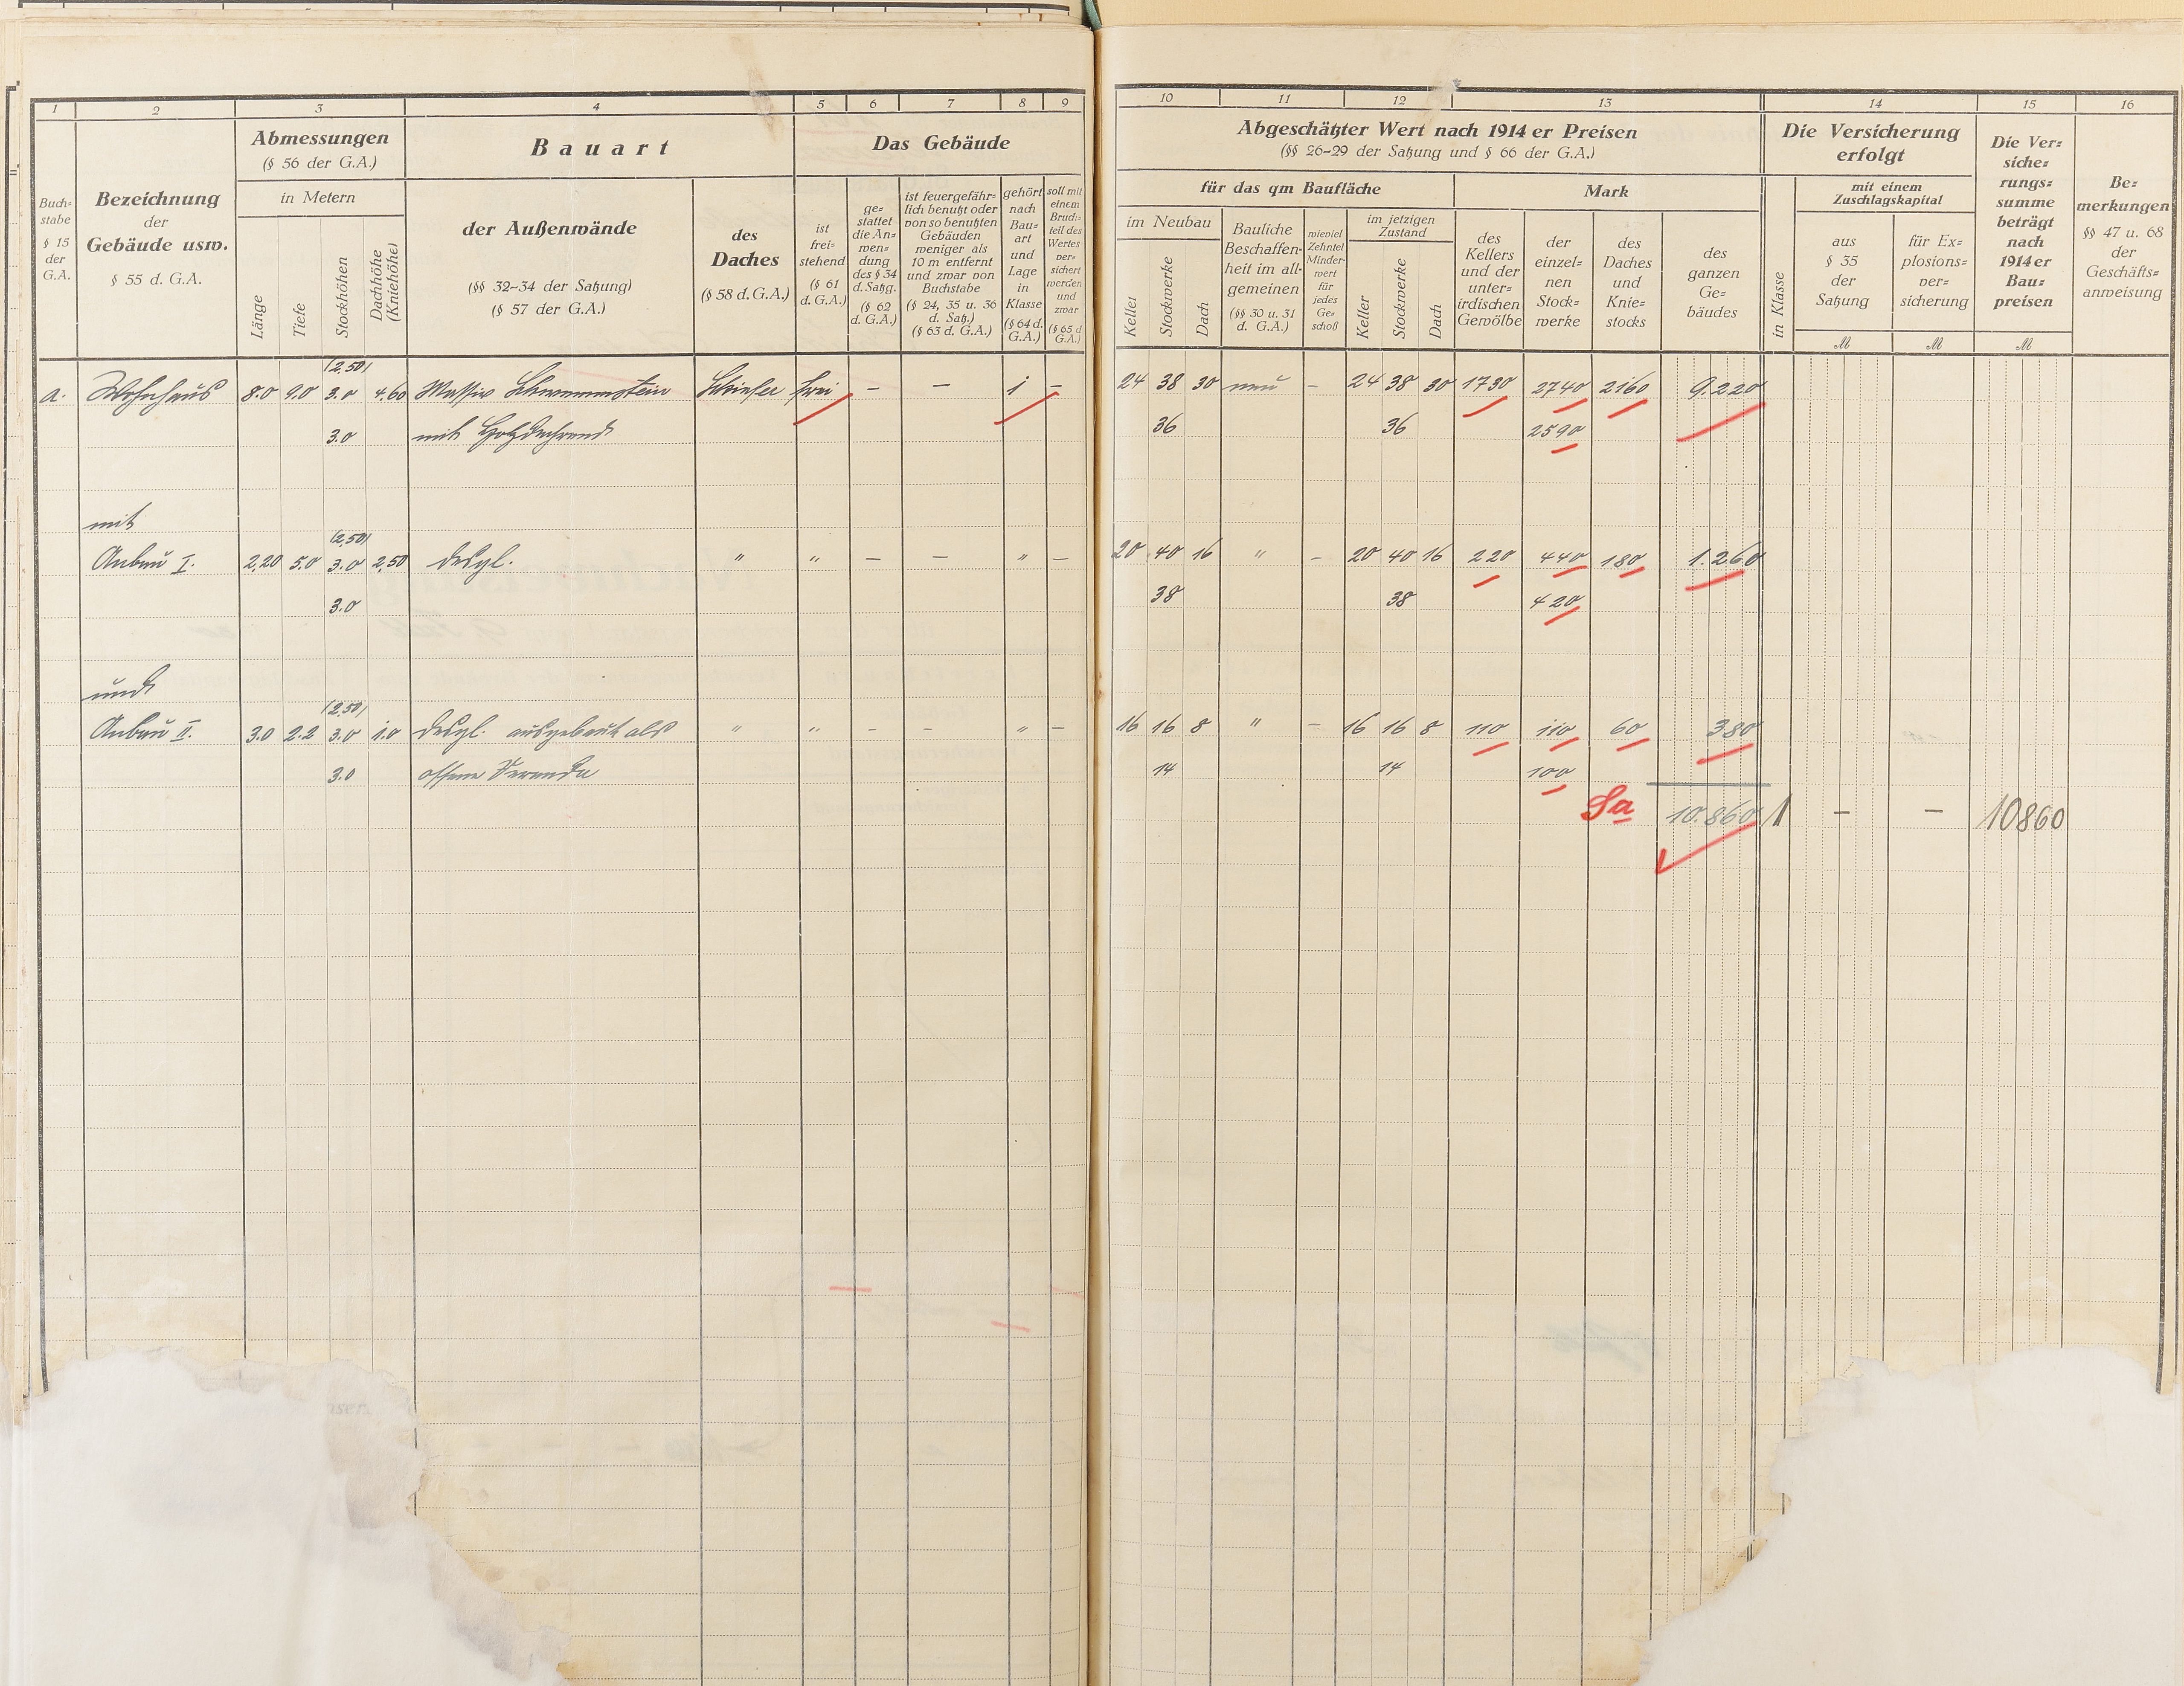 1 2 3 4 5 6 7 8 9
Buch-
stabe
§ 15
der
G.A.
Bezeichnung
der
Gebäude usw.
§ 55 d. G.A.
Abmessungen
(§ 56 der G.A.)
in Metern
Länge
Tiefe
Stockhöhen
Dachhöhe
(Kniehöhe)
Bauart
der Außenwände
(§§ 32-34 der Satzung)
(§ 57 der G.A.)
des
Daches
(§ 58 d. G.A.)
Das Gebäude
ist
frei-
stehend
(§ 61
d. G.A.)
ge-
stattet
die An-
wen-
dung
des § 34
d. Satzg.
(§ 62
d. G.A.)
ist feuergefähr-
lich benutzt oder
von so benutzten
Gebäuden
weniger als
10 m entfernt
und zwar von
Buchstabe
(§ 24, 35 u. 36
d. Satz.)
(§ 63 d. G.A.)
gehört
nach
Bau-
art
und
Lage
in
Klasse
(§ 64 d.
G.A.)
soll mit
einem
Bruch-
teil des
Wertes
ver-
sichert
werden
und
zwar
(§ 65 d
G.A.)
(2,50)
a. Wohnhaus 8.0 9.0 3.0 4.60 Massiv Schwemmstein Schiefer frei – – 1 –
3.0 mit Holzdachrand
mit
(2,50)
Anbau I. 2,20 5.0 3.0 2,50 desgl. " " – – " –
3.0
und
(2,50)
Anbau II. 3.0 2.2 3.0 1.0 desgl. ausgebaut als " " – – " –
3.0 offene Veranda
10 11 12 13 14 15 16
Abgeschätzter Wert nach 1914er Preisen
(§§ 26-29 der Satzung und § 66 der G.A.)
für das qm Baufläche
im Neubau
Keller
Stockwerke
Dach
Bauliche
Beschaffen-
heit im all-
gemeinen
(§§ 30 u. 31
d. G.A.)
wieviel
Zehntel
Minder-
wert
für
jedes
Ge-
schoß
im jetzigen
Zustand
Keller
Stockwerke
Dach
Mark
des
Kellers
und der
unter-
irdischen
Gewölbe
der
einzel-
nen
Stock-
werke
des
Daches
und
Knie-
stocks
des
ganzen
Ge-
bäudes
Die Versicherung
erfolgt
in Klasse
mit einem
Zuschlagskapital
aus
§ 35
der
Satzung
ℳ
für Ex-
plosions-
ver-
sicherung
ℳ
Die Ver-
siche-
rungs-
summe
beträgt
nach
1914er
Bau-
preisen
ℳ
Be-
merkungen
§§ 47 u. 68
der
Geschäfts-
anweisung
24 38 30 neu – 24 38 30 1730 2740 2160 9.220
36 36 2590
20 40 16 " – 20 40 16 220 440 180 1.260
38 38 420
16 16 8 " – 16 16 8 110 110 60 380
14 14 100
Sa 10.860 1 – – 10860